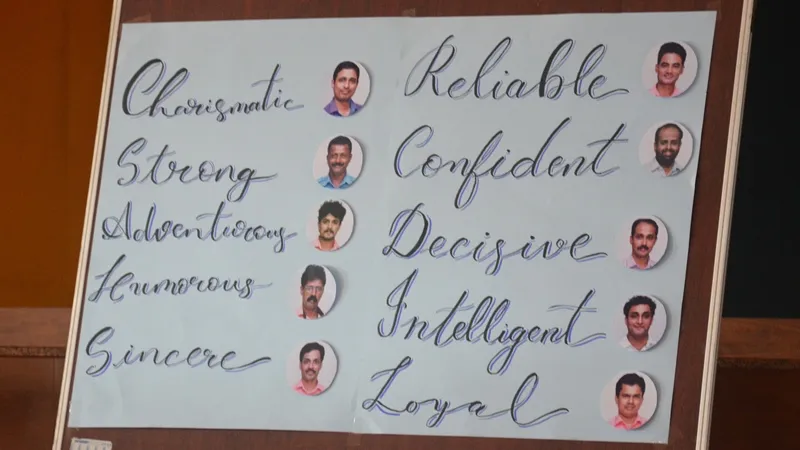 Charismatic
Strong
Adventurous
Humorous
Sincere
Reliable
Confident
Decisive
Intelligent
Loyal